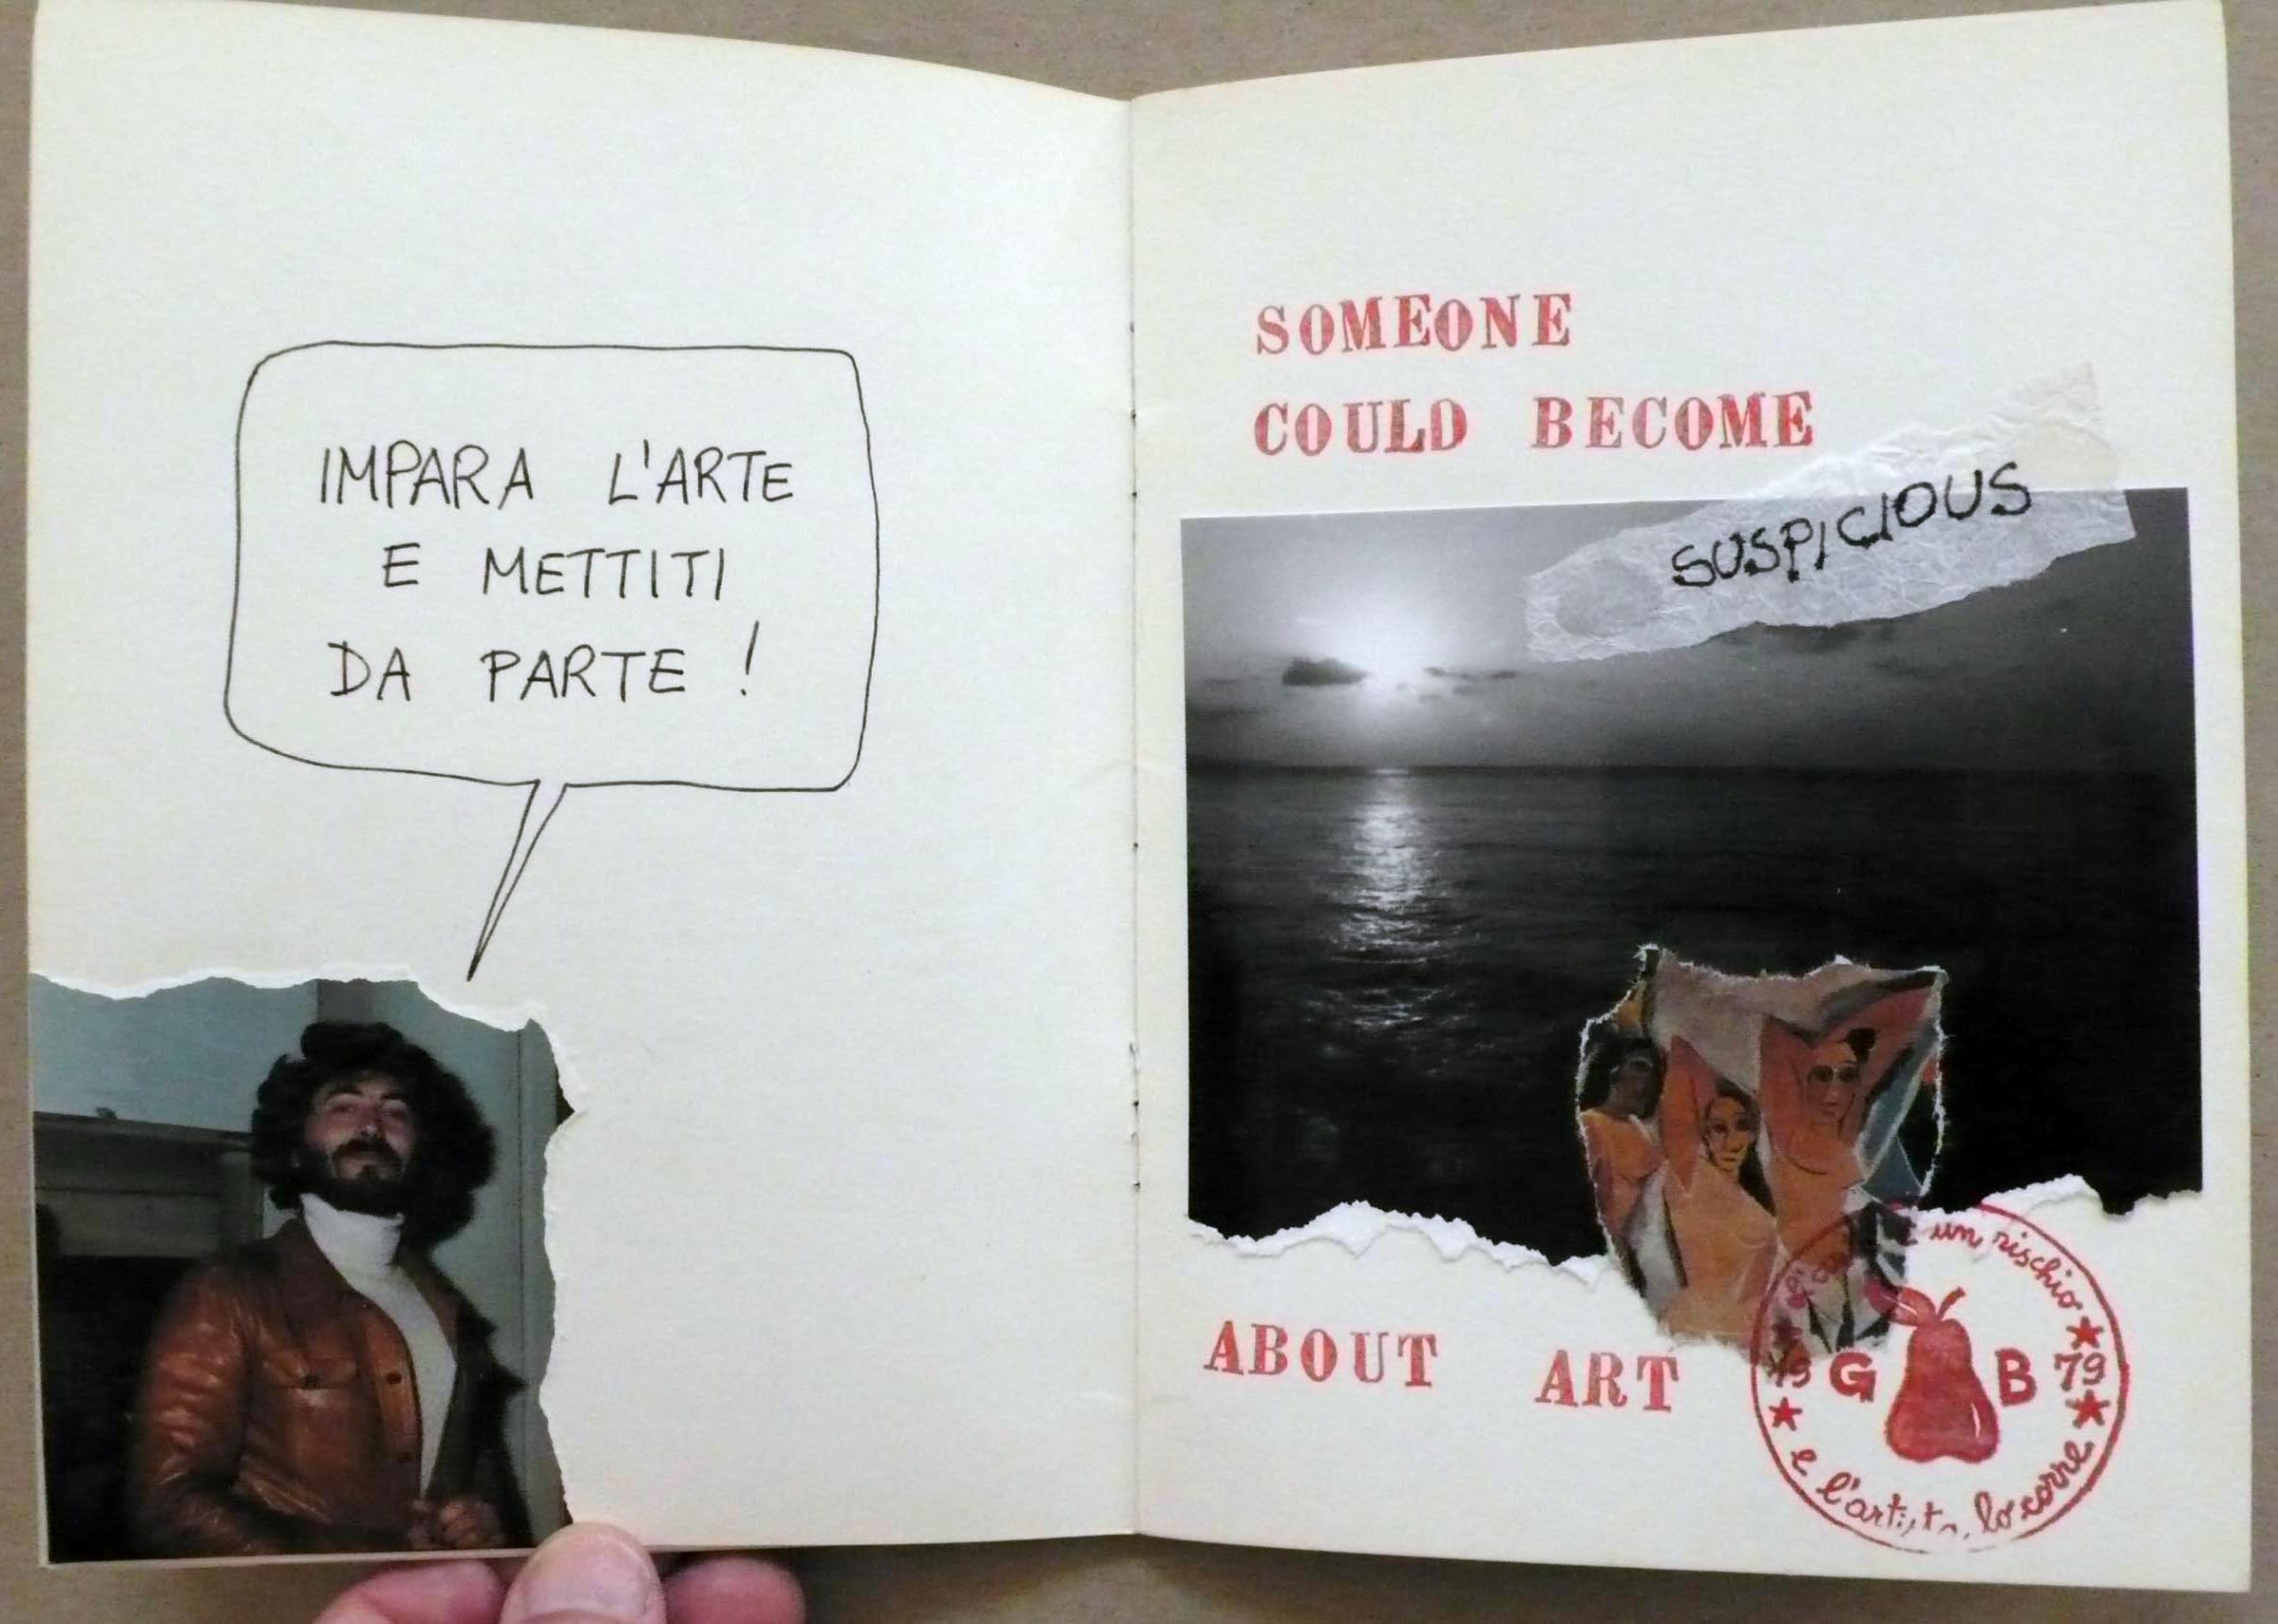 IMPARA L'ARTE
E METTITI
DA PARTE !
SOMEONE
COULD BECOME
SUSPICIOUS
ABOUT ART
un rischio
19 G B 79
e l'artista lo corre